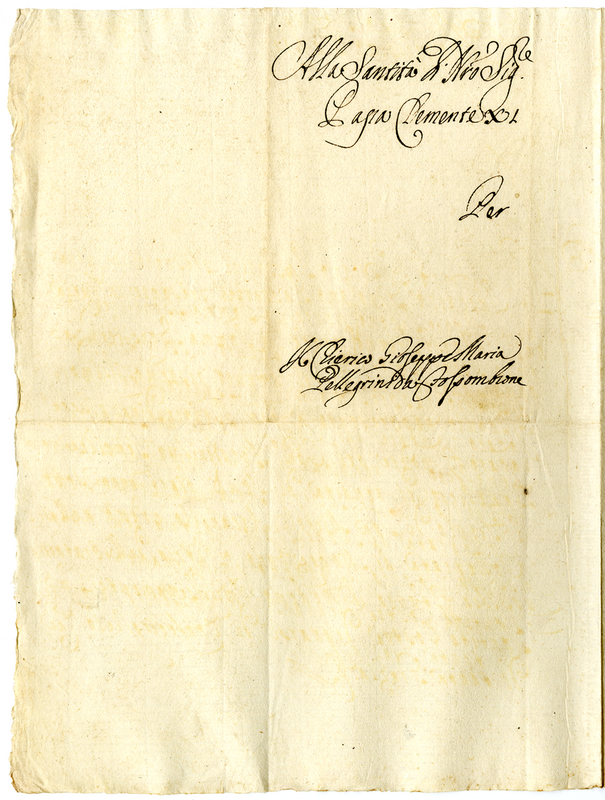 Alla Santità di Nro Sig.re
Papa Clemente XI
Per
Il Chierico Gioseppe Maria
Pellegrini da Fossombrone